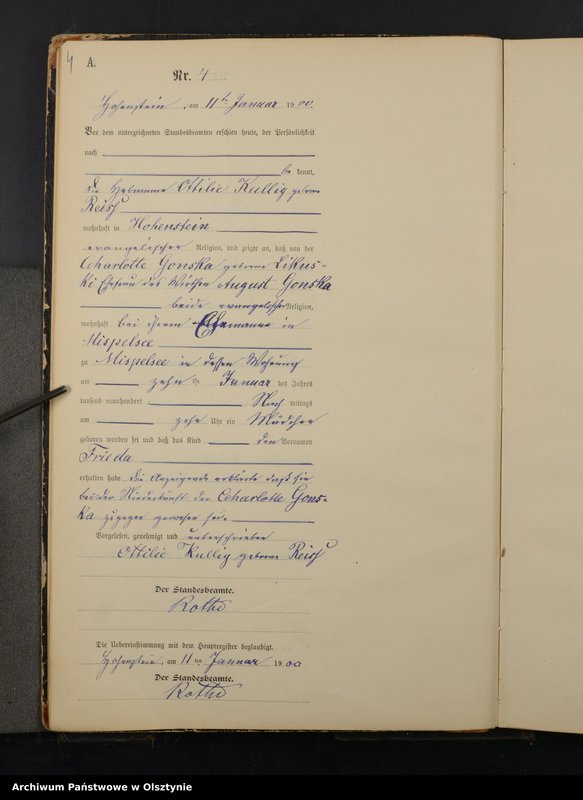 4
A.
Nr. 4
Hohenstein, am 11ten Januar 1900.
Vor dem unterzeichneten Standesbeamten erschien heute, der Persönlichkeit
nach
be kannt,
die Hebamme Ottilie Kullig geborne
Reiss
wohnhaft in Hohenstein
evangelischer Religion, und zeigte an, daß von der
Charlotte Gonska geborne Likus-
ki Ehefrau des Wirthen August Gonska
beide evangelischer Religion,
wohnhaft bei ihrem Ehemanne in
Mispelsee
zu Mispelsee in dessen Wohnung
am zehn ten Januar des Jahres
tausend neunhundert Nach mittags
um zehn Uhr ein Mädchen
geboren worden sei und daß das Kind den Vornamen
Frieda
erhalten habe die Anzeigende erklärte daß sie
bei der Niederkunft der Charlotte Gons-
ka zugegen gewesen sei.
Vorgelesen, genehmigt und unterschrieben
Ottilie Kullig geborne Reiss
Der Standesbeamte.
Rothe
Die Uebereinstimmung mit dem Hauptregister beglaubigt.
Hohenstein, am 11 ten Januar 1900
Der Standesbeamte.
Rothe
Archiwum Państwowe w Olsztynie